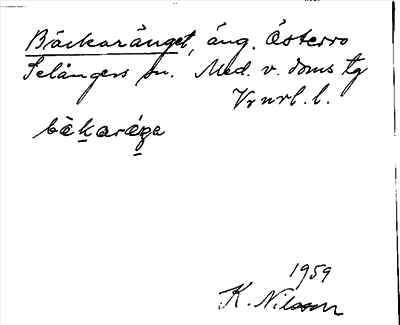 Bäckaränget, äng. Österro
Selångers sn. Med. v. doms tg
Vrnrl. l.
bäkaräŋe
1959
K. Nilsson